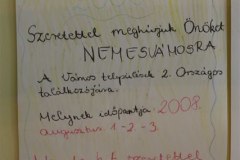 Szeretettel meghívjuk Önöket
NEMESVÁMOSRA
A Vámos települések 2. Országos
találkozójára.
Melynek időpontja 2008.
augusztus 1-2-3.
szeretettel